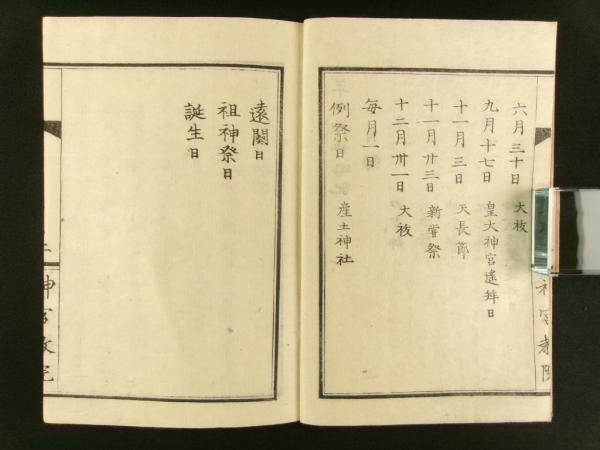 六月三十日 大祓
九月十七日 皇大神宮遙拜日
十一月三日 天長節
十一月廿三日 新嘗祭
十二月卅一日 大祓
每月一日
例祭日 產土神社
遠閾日
祖神祭日
誕生日
神宮教院